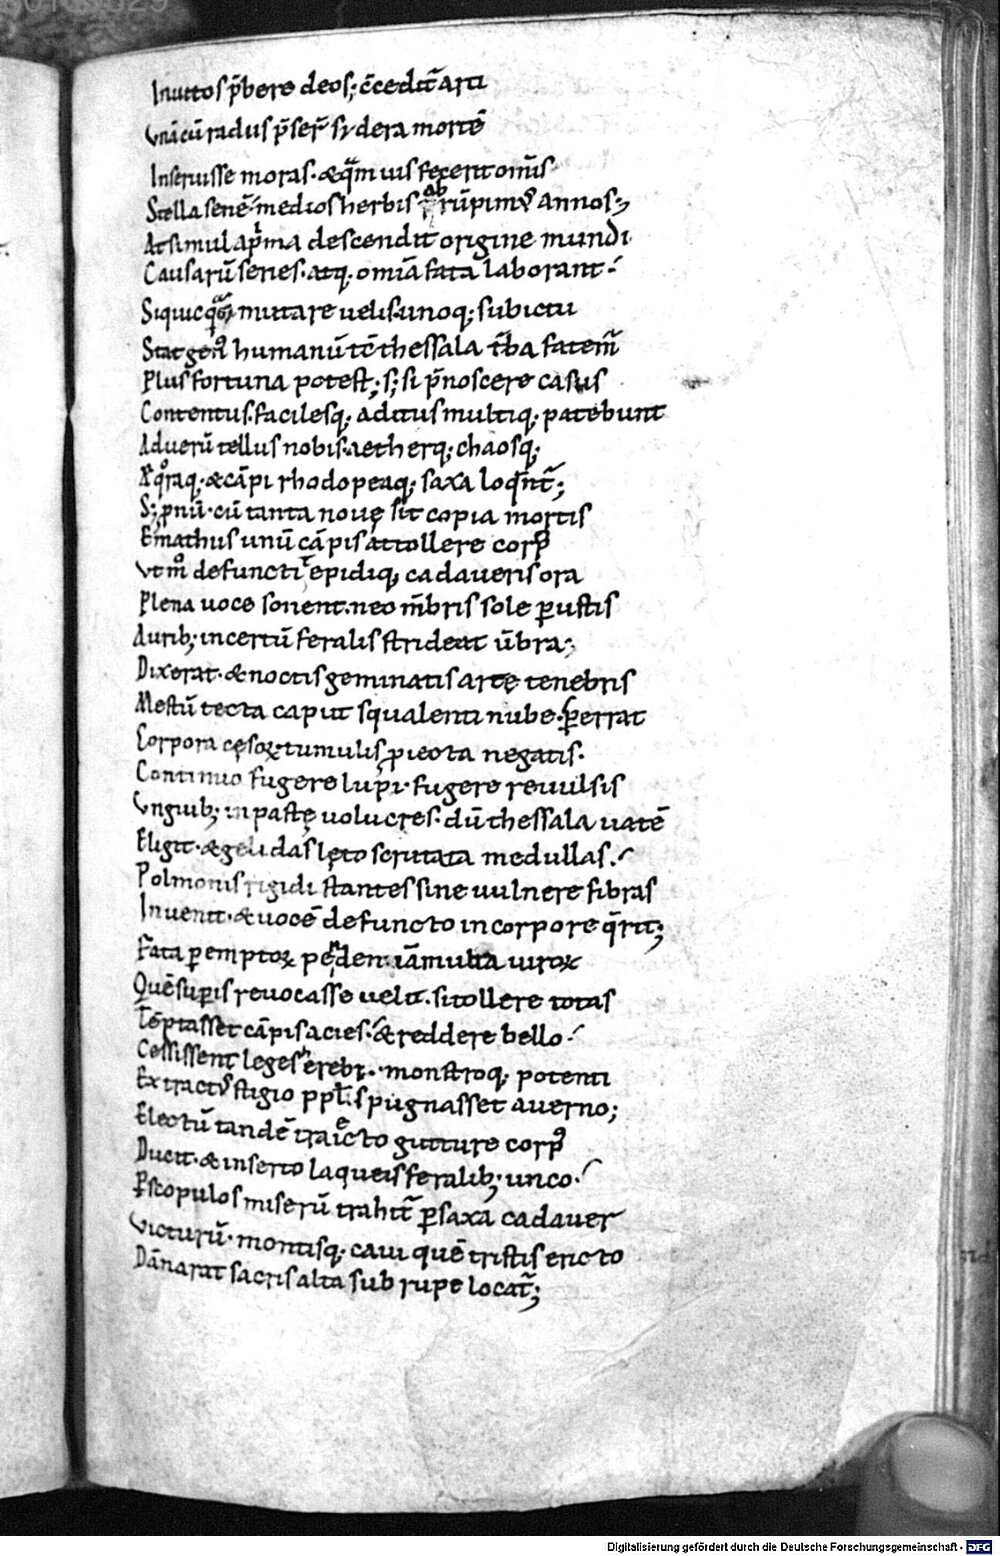 Inuitos p̄bere deos; c̄cedit̄ arti
Vnā cū radiis p̄ser̄ sydera mortē
Inseruisse moras. & q̄m uis fecerit om̄is
Stella senē. medios herbis ab rūpimꝰ annos;
At simul a p̄ma descendit origine mundi
Causarū series. atq; om̄ia fata laborant.
Siquicq̄ mutare uelis unoq; sub ictu
Stat genꝰ humanū tc̄ thessala t̄ba fatem̄
Plus fortuna potest; s; si p̄noscere casus
Contentus. facilesq; aditus multiq; patebunt
Aduerū tellus nobis. aetherq; chaosq;
Aeq̊raq; & cāpi rhodopeaq; saxa loq̄nt̄;
S; ꝓnū. cū tanta nouę sit copia mortis
Emathiis unū cāpis attollere corpꝰ
Vt m̊ defuncti tepidiq; cadaueris ora
Plena uoce sonent. neo m̄bris sole ꝑustis
Aurib; incertū feralis strideat ūbra;
Dixerat. & noctis geminatis arte tenebris
Mestū tecta caput squalenti nube. ꝑerrat
Corpora cęsoꝝ tumulis ꝓiecta negatis.
Continuo fugere lupi. fugere reuulsis
Vnguib; inpastę uolucres. dū thessala uatē
Eligit. & gelidas lęto scrutata medullas.
Polmonis rigidi stantes sine uulnere fibras
Inuenit. & uocē defuncto in corpore q̄rit;
Fata ꝑemptoꝝ pendent iā multa uiroꝝ
Quē suꝑis reuocasse uelit. si tollere totas
Tēptasset cāpis acies. & reddere bello.
Cessissent leges herebi. monstroq; potenti
Extractꝰ stigio ppl̄s pugnasset auerno;
Electū tandē traiecto gutture corpꝰ
Ducit. & inserto laqueis feralib; unco.
Ꝑ scopulos miserū trahit̄ ꝑ saxa cadauer
Victurū. montisq; caui quē tristis ericto
Dānarat sacris alta sub rupe locat̄;
Digitalisierung gefördert durch die Deutsche Forschungsgemeinschaft - DFG